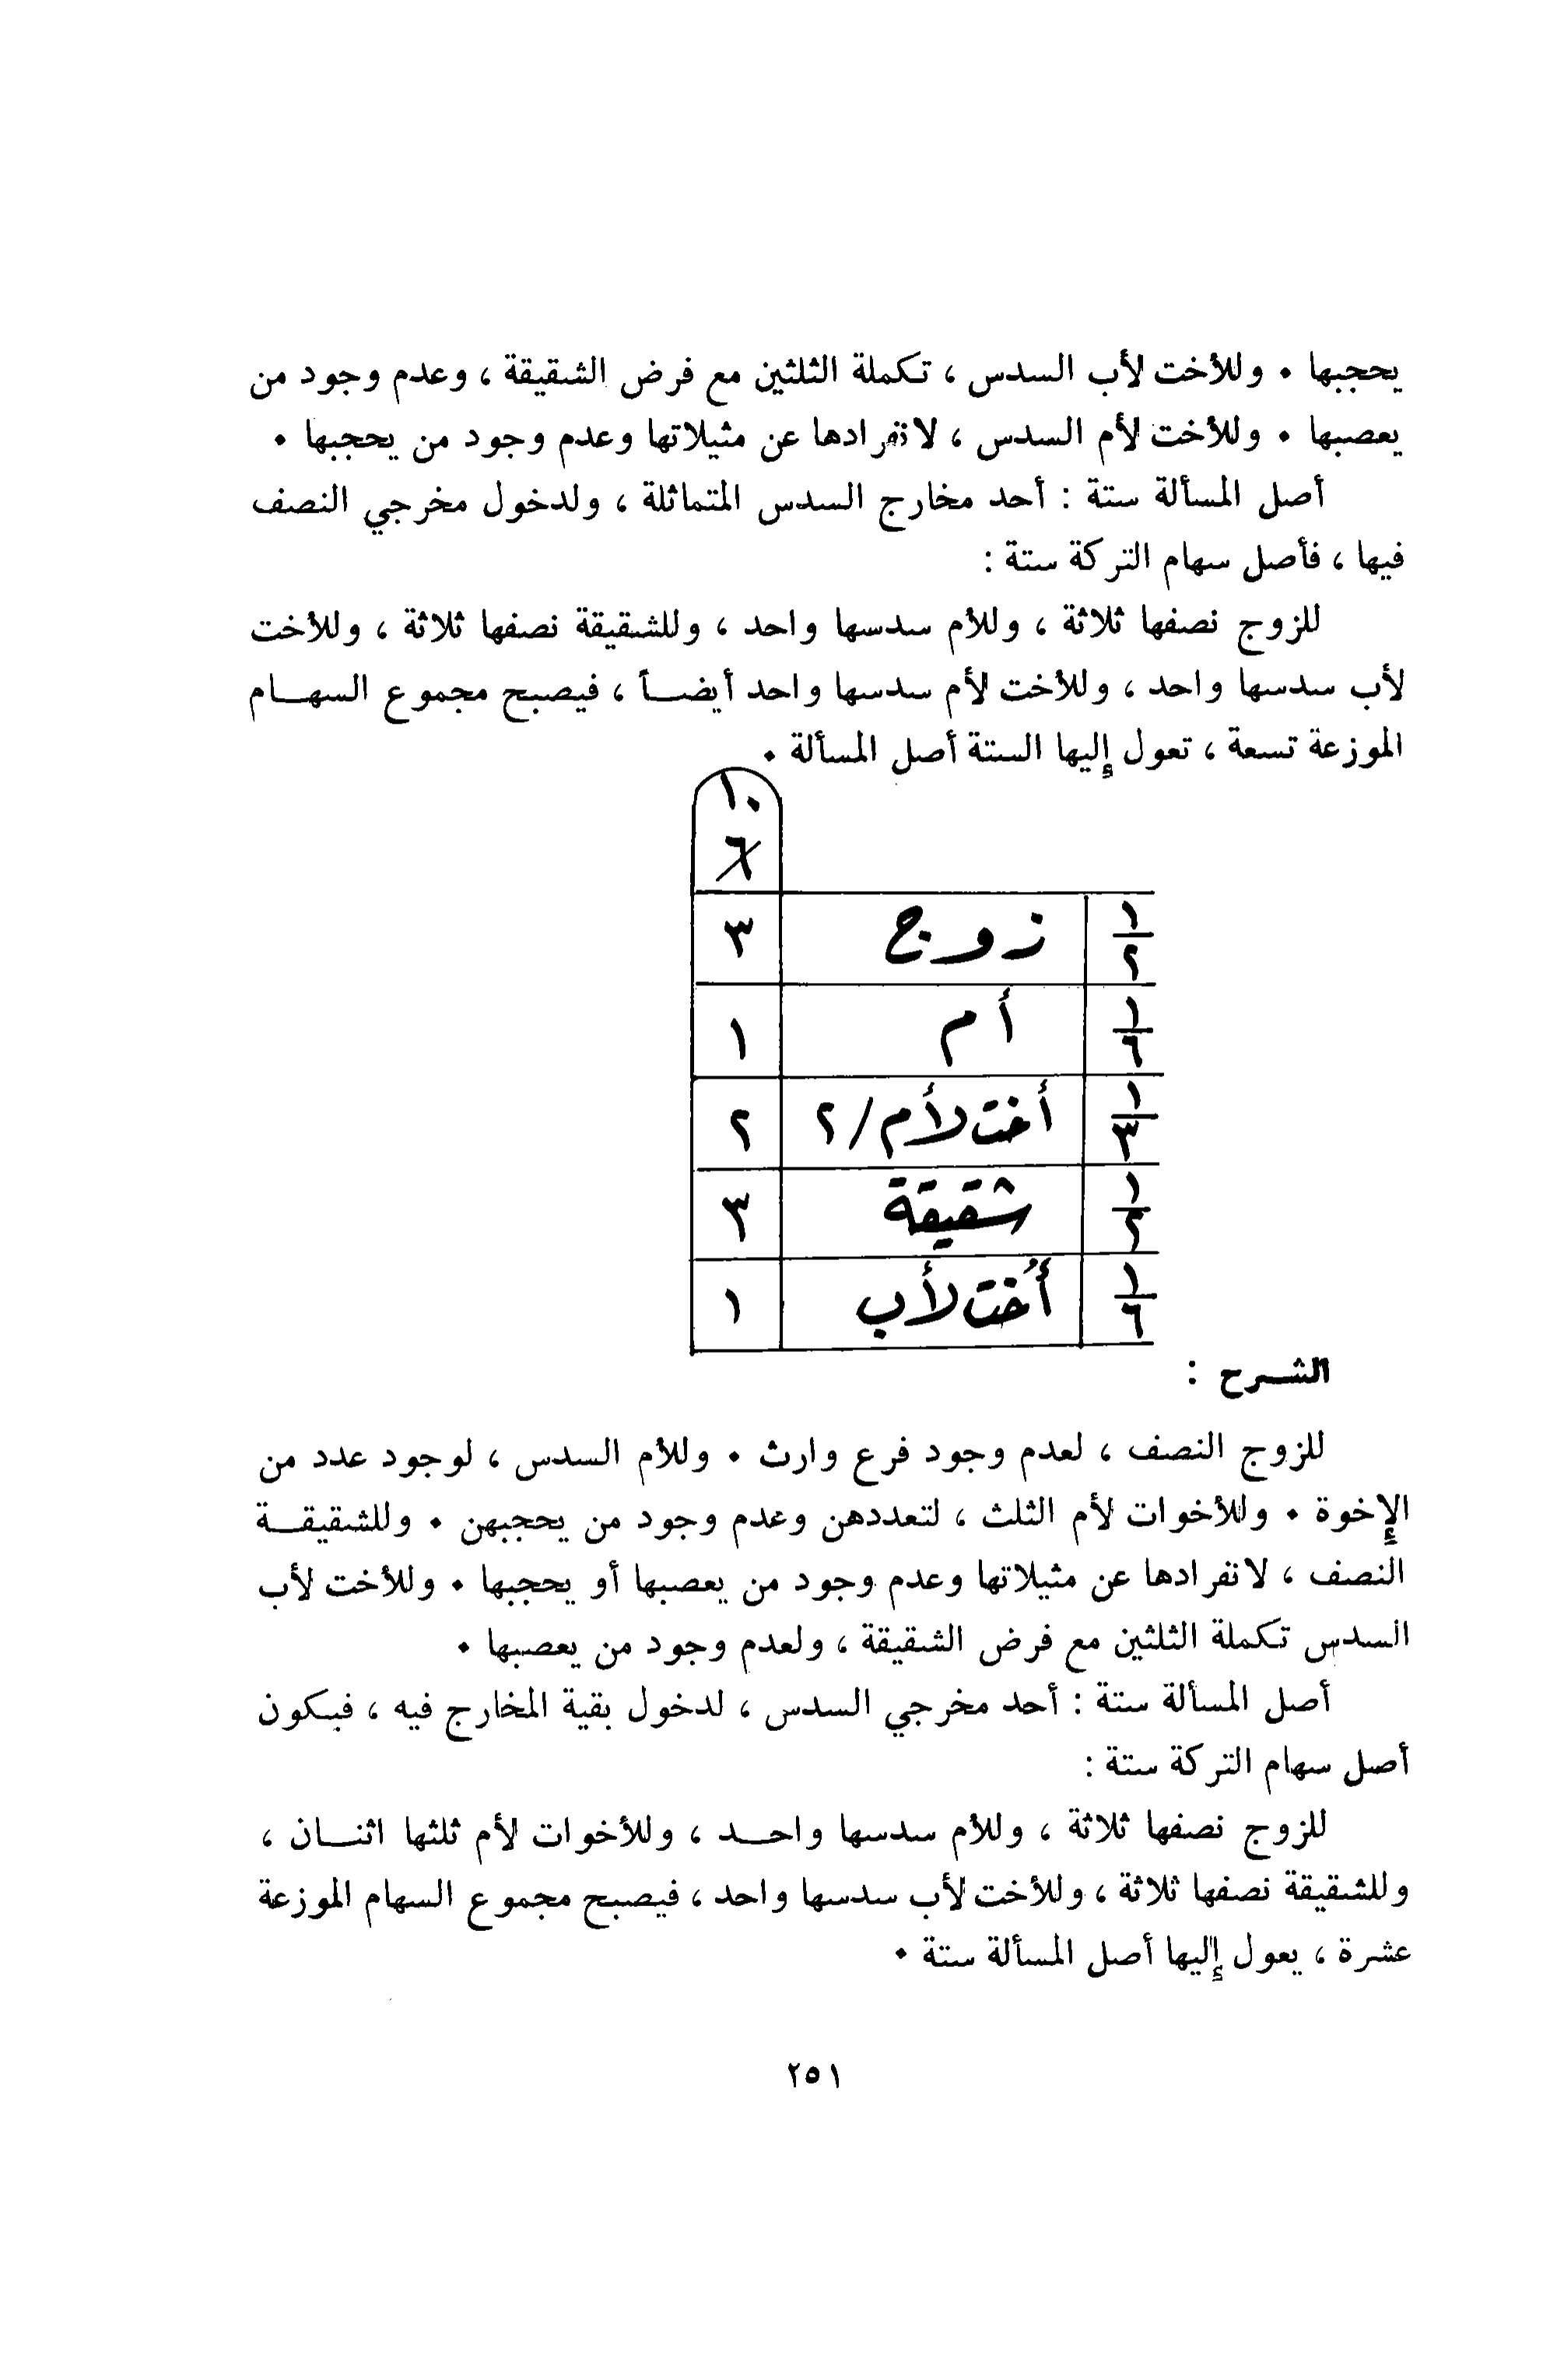 يحجبها ٠ وللأخت لأب السدس ، تكملة الثلثين مع فرض الشقيقة ، وعدم وجود من
يعصبها ٠ وللأخت لأم السدس ، لانفرادها عن مثيلاتها وعدم وجود من يحجبها ٠
أصل المسألة ستة : أحد مخارج السدس المتماثلة ، ولدخول مخرجي النصف
فيها ، فأصل سهام التركة ستة :
للزوج نصفها ثلاثة ، وللأم سدسها واحد ، وللشقيقة نصفها ثلاثة ، وللأخت
لأب سدسها واحد ، وللأخت لأم سدسها واحد أيضــاً ، فيصبح مجموع السهــام
الموزعة تسعة ، تعول إليها الستة أصل المسألة ٠
١٠
٦
١/٢ زوج ٣
١/٦ أم ١
١/٣ أخت لأم/٢ ٢
١/٢ شقيقة ٣
١/٦ أُخت لأب ١
الشــرح :
للزوج النصف ، لعدم وجود فرع وارث ٠ وللأم السدس ، لوجود عدد من
الإخوة ٠ وللأخوات لأم الثلث ، لتعددهن وعدم وجود من يحجبهن ٠ وللشقيقــة
النصف ، لانفرادها عن مثيلاتها وعدم وجود من يعصبها أو يحجبها ٠ وللأخت لأب
السدس تكملة الثلثين مع فرض الشقيقة ، ولعدم وجود من يعصبها ٠
أصل المسألة ستة : أحد مخرجي السدس ، لدخول بقية المخارج فيه ، فيكون
أصل سهام التركة ستة :
للزوج نصفها ثلاثة ، وللأم سدسها واحــد ، وللأخوات لأم ثلثها اثنــان ،
وللشقيقة نصفها ثلاثة ، وللأخت لأب سدسها واحد ، فيصبح مجموع السهام الموزعة
عشرة ، يعول إليها أصل المسألة ستة ٠
٢٥١